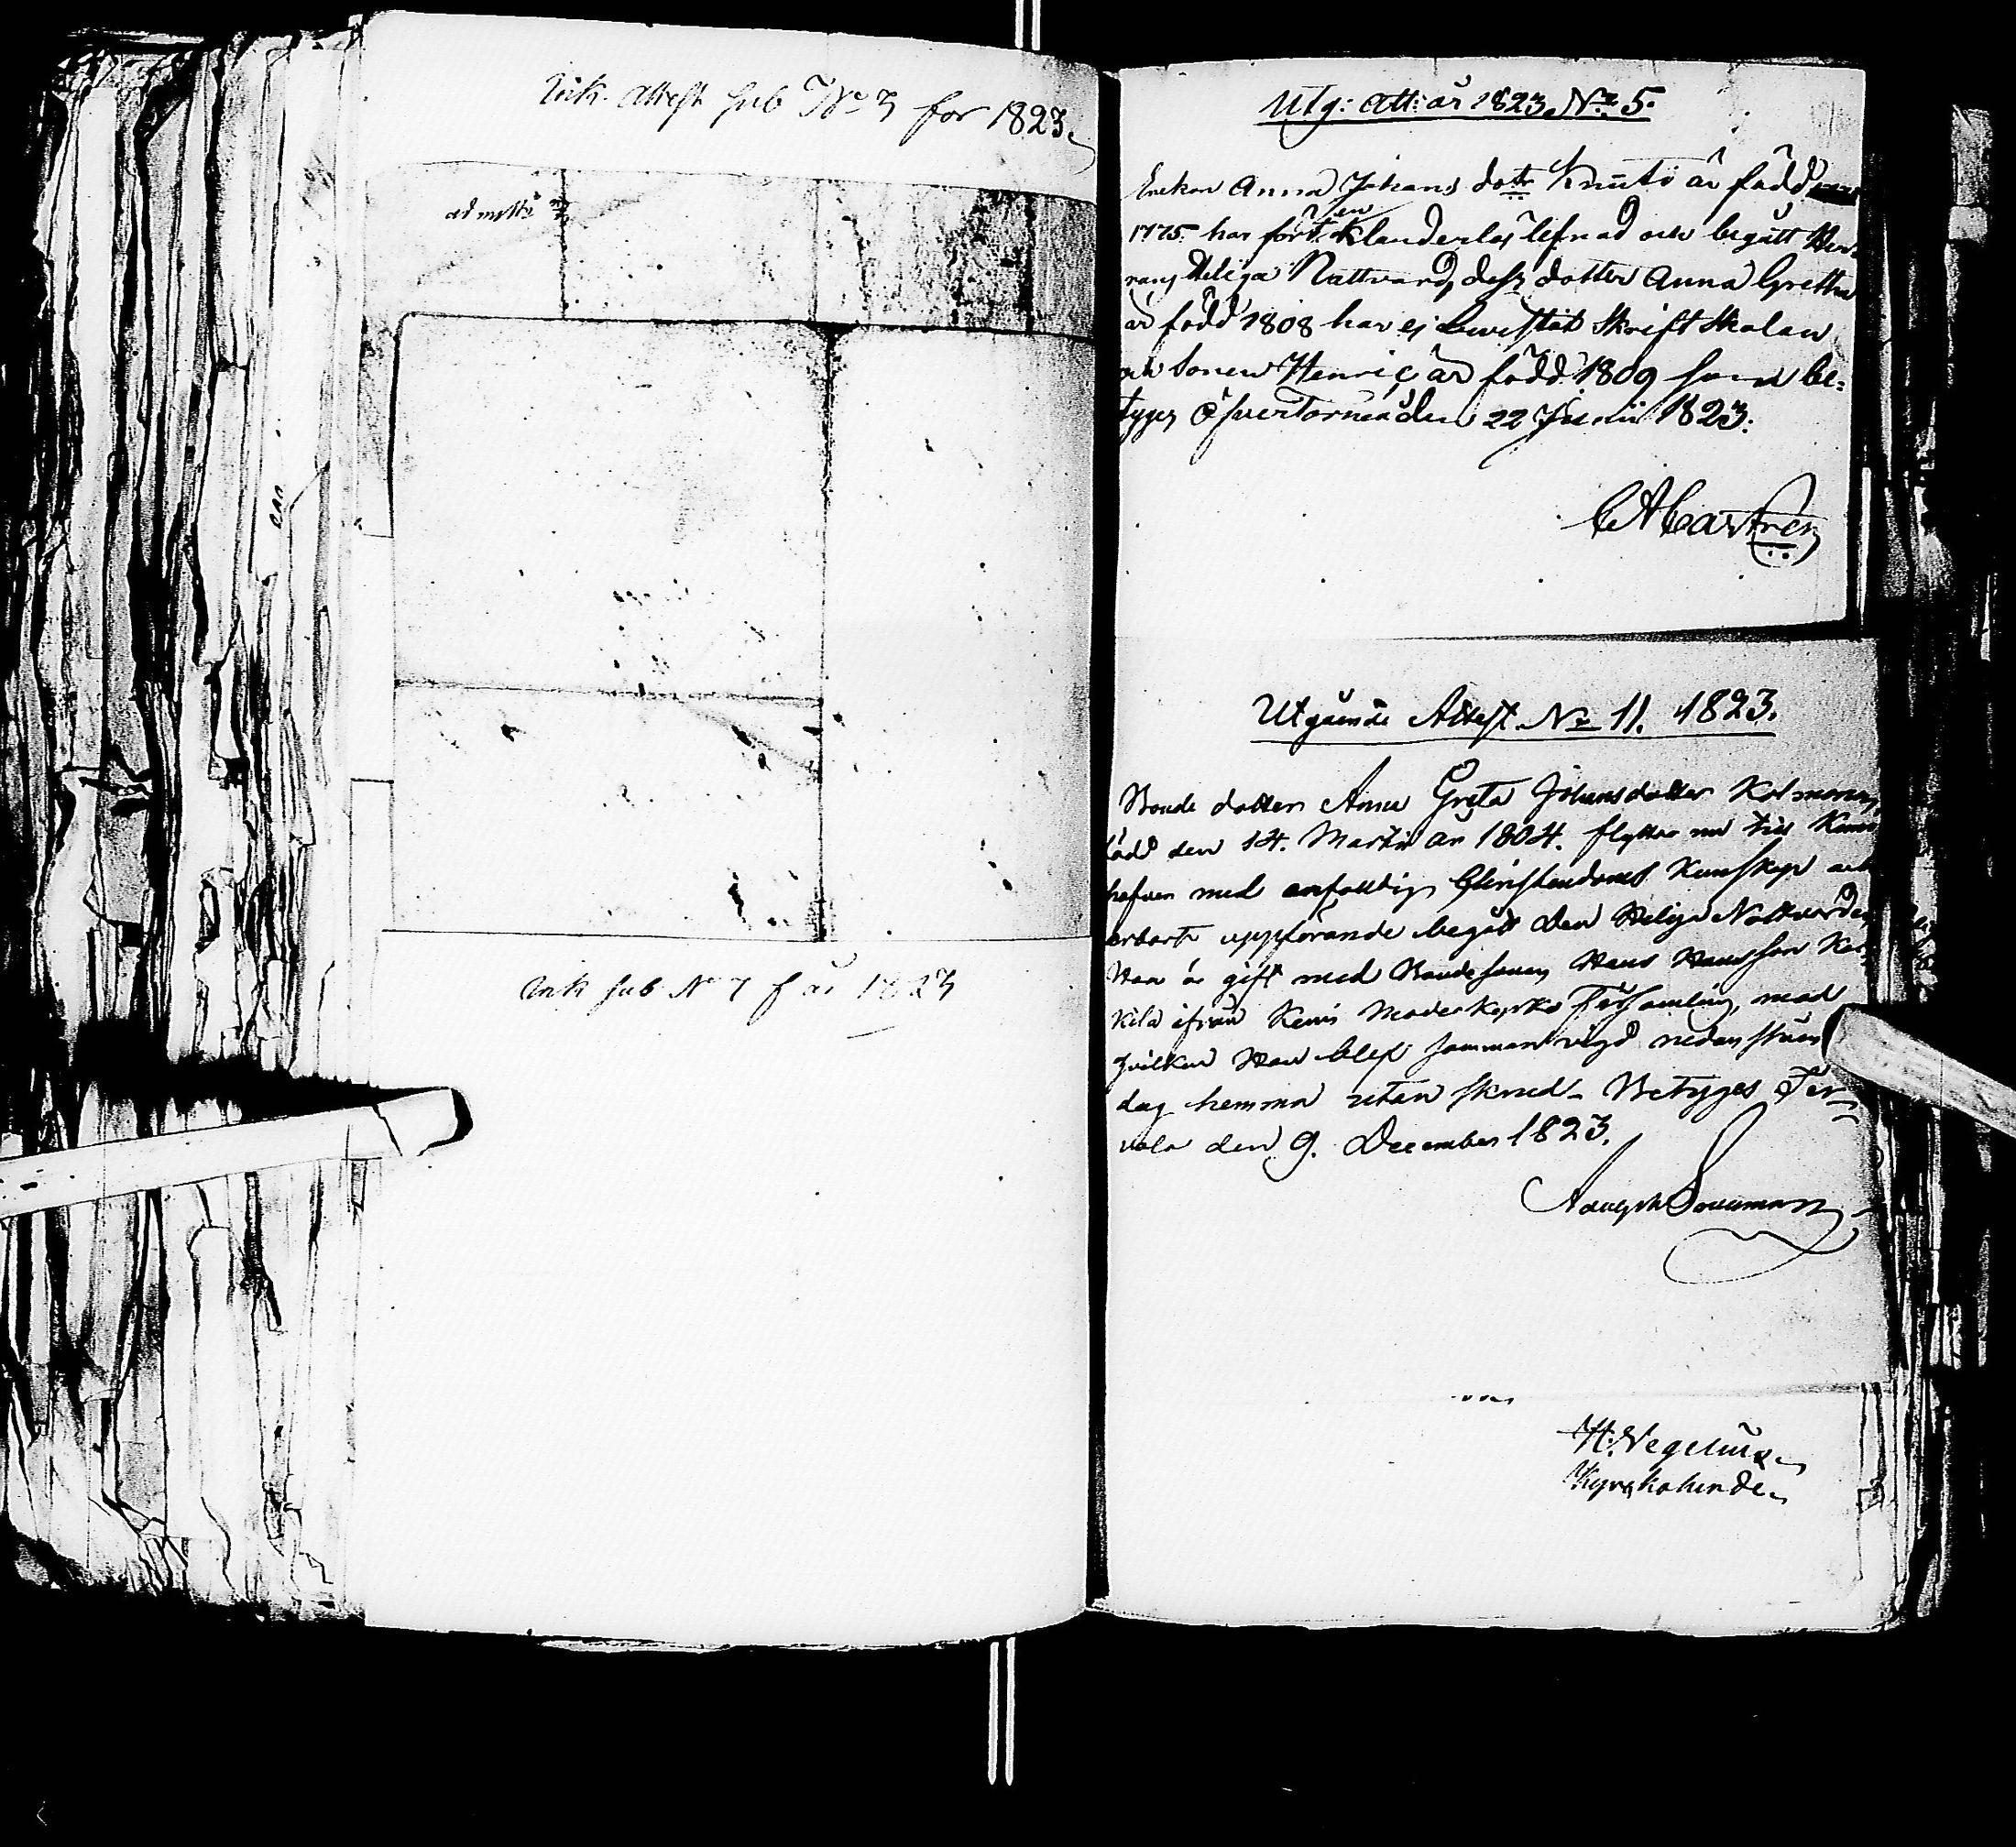 Ink. Attest sub No 3 for 1823.
admitt
Ink sub No 7 f år 1823
Utg: Att: år 1823 No 5.
Enkan Anna Johans dotr Knuti är född
1775. har fört en klanderlös lefnad och begått Her-
rans Heliga Nattvard, dess dotter Anna Gretha
är född 1808 har ej bewistat Skrift Skolan
och Sonen Henric är född 1809 som be-
tyges Öfvertorneå den 22 Junii 1823.
CACastrén
Utgående Attest No 11. 1823.
Bonde dottern Anna Greta Johansdotter
född den 14. Martii år 1804. flyttar nu till Kemi
hafver med enfaldig Christendoms Kunskap och
ärbart uppförande begått den Heliga Nattvarden,
Hon är gift med Bondesonen Hans Hansson
ifrån Kemi Moderkyrko Församling, med
hvilken Hon blef sammanvigd nedanskrefne
dag hemma utan skrud. Betyges Ter-
vola den 9. December 1823.
Adolph
H: Vegelius
Kyrckoherde